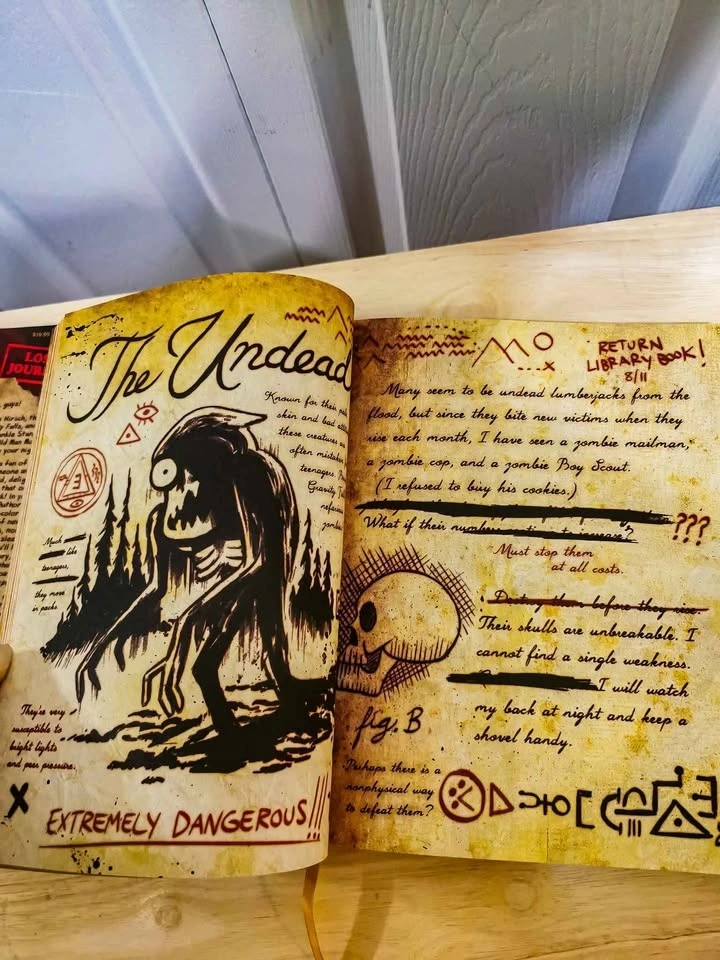 The Undead
Known for their pale
skin and bad
these creatures
often mistaken
teenagers.
Gravity
Much like
teenagers,
they move
in packs.
They're very
susceptible to
bright lights
and peer pressure.
X
EXTREMELY DANGEROUS!!!
RETURN
LIBRARY BOOK!
8/11
Many seem to be undead lumberjacks from the
flood, but since they bite new victims when they
rise each month, I have seen a zombie mailman,
a zombie cop, and a zombie Boy Scout.
(I refused to buy his cookies.)
What if their numbers continue to increase? ???
Must stop them
at all costs.
Destroy them before they rise.
Their skulls are unbreakable. I
cannot find a single weakness.
I will watch
my back at night and keep a
shovel handy.
fig. B
Perhaps there is a
nonphysical way
to defeat them?